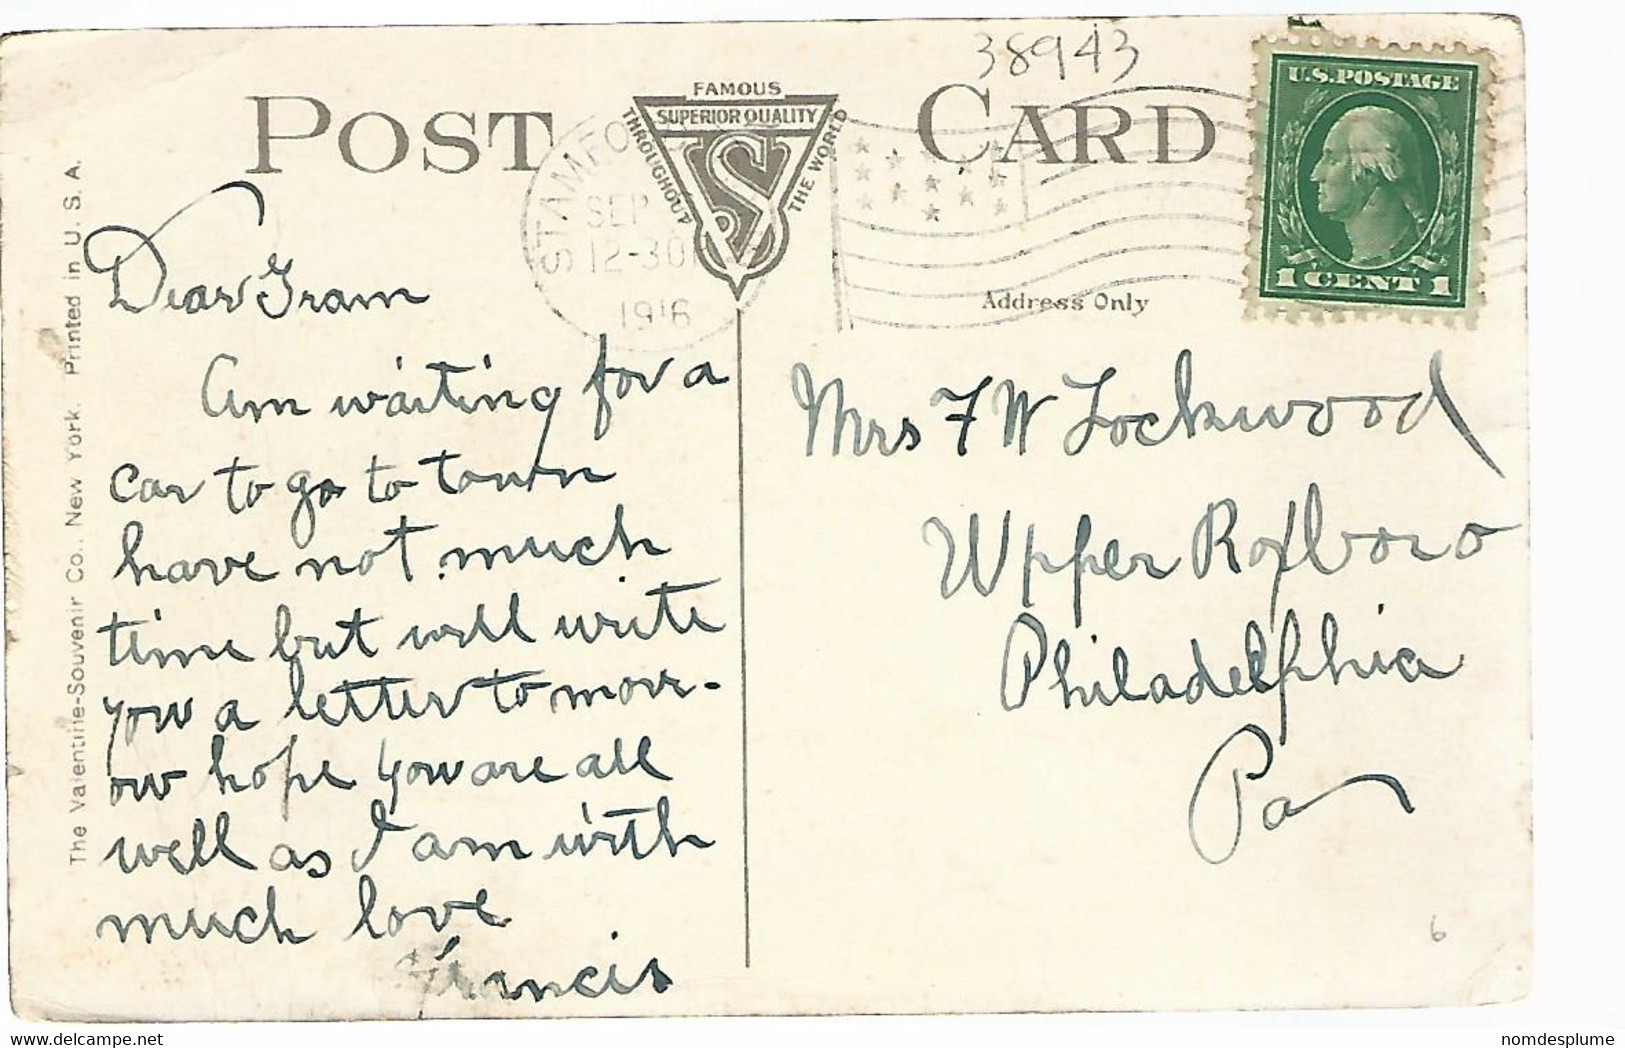 38943
POST CARD
FAMOUS
SUPERIOR QUALITY
THROUGHOUT
THE WORLD
STAMFO
SEP
12-30
1916
U.S. POSTAGE
1 CENT 1
Address Only
The Valentine-Souvenir Co., New York. Printed in U. S. A.
Dear Gram
Am waiting for a
car to go to town
have not much
time but will write
you a letter to morr-
ow hope you are all
well as I am with
much love
Francis
Mrs F W Lockwood
Upper Roxboro
Philadelphia
Pa
6
www.delcampe.net
nomdesplume